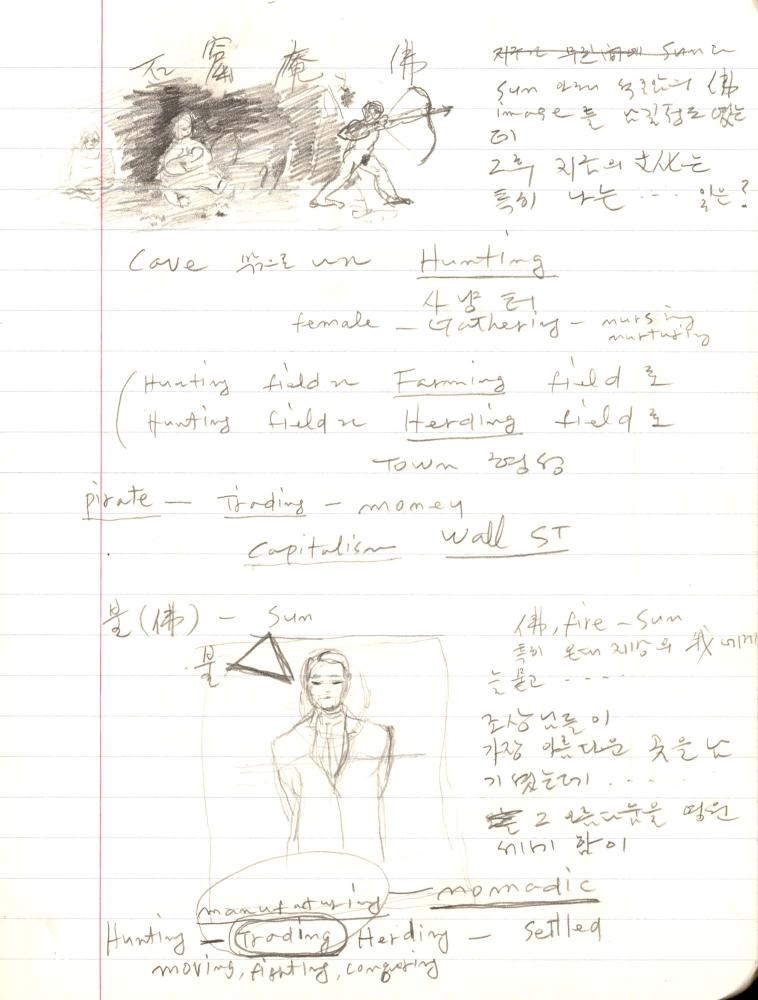 石 窟 庵 佛
Sun
Sun 아래 석굴암의 佛
image를 느낄정도 였는
데
그후 지금의 文化는
특히 나는 .... 일은?
Cave 밖으로 Hunting
사냥터
female – Gathering – nursing
nurturing
Hunting field Farming field 로
Hunting field Herding field 로
Town 형성
pirate – Trading – money
Capitalism Wall ST
불(佛) – Sun
불
佛, fire – Sun
특히 지상의 我
늘 묻고 ....
조상님들이
가장 아름다운 곳을 남
기셨는데 ....
그 아름다움을 영원
함이
manufacturing – nomadic
Hunting – Trading Herding – Settled
moving, fighting, conquering